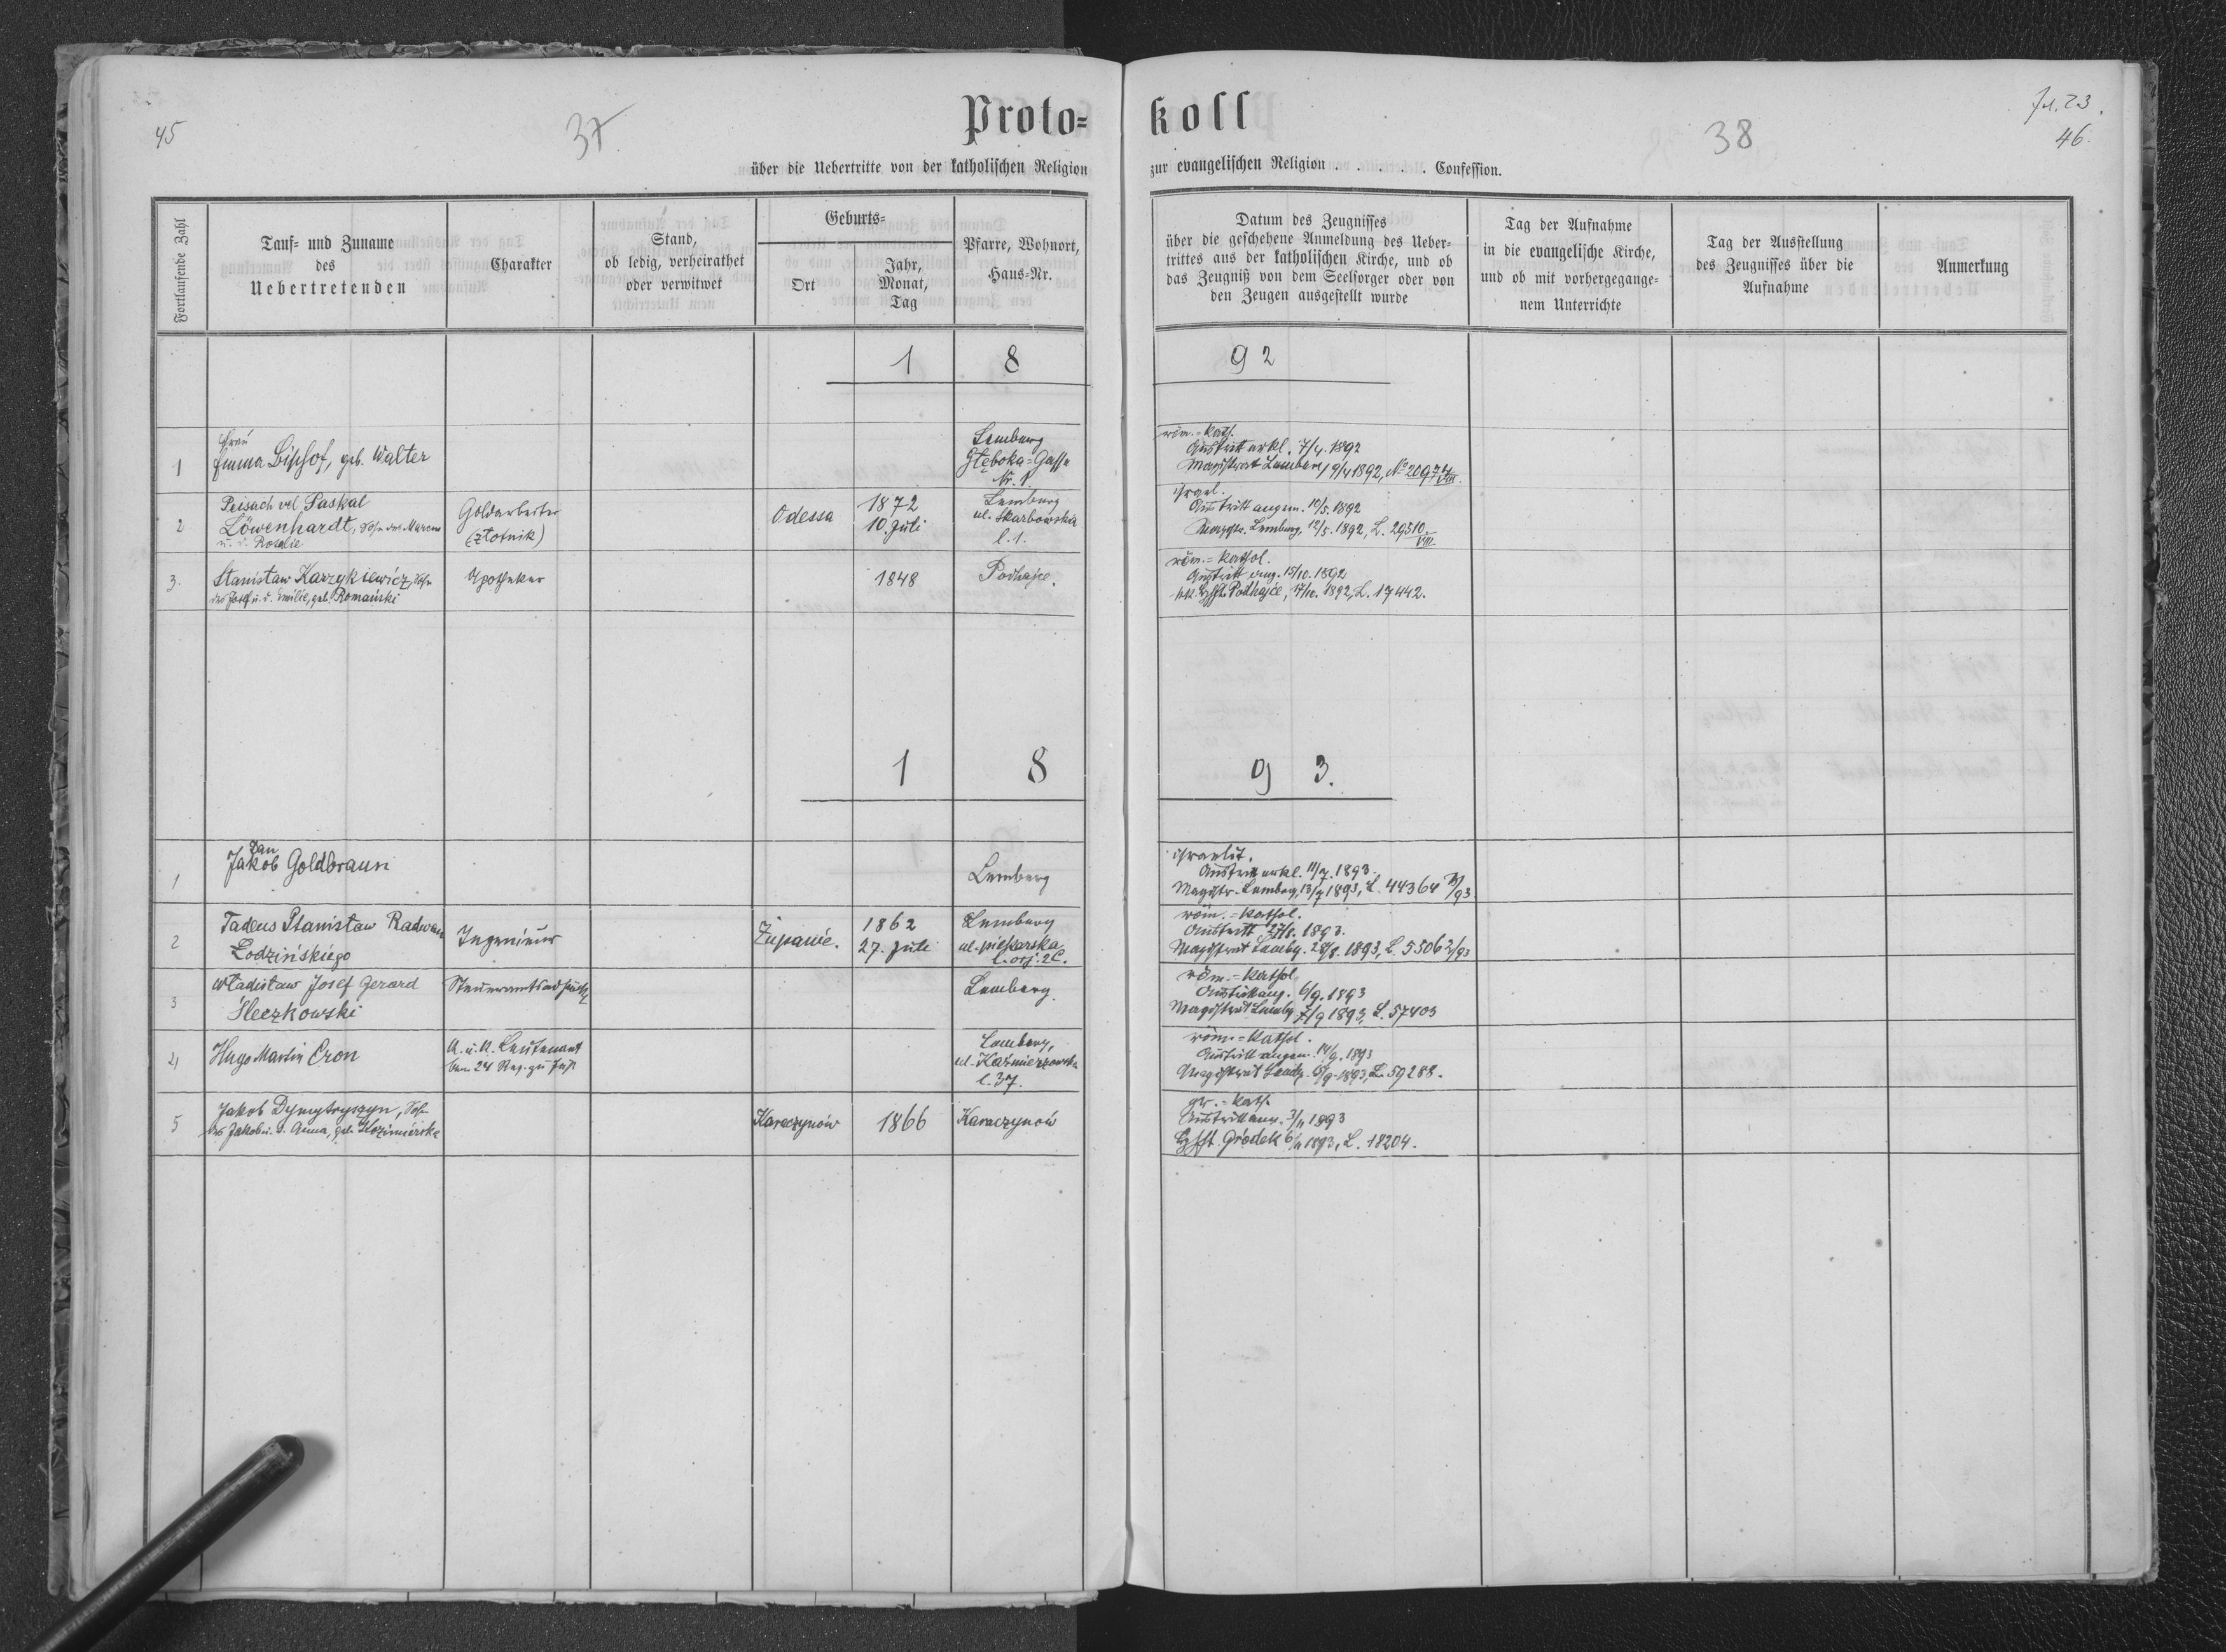 45
37
Proto=
koll
38
Fol. 23.
46.
über die Uebertritte von der katholischen Religion
zur evangelischen Religion . . . . . Confession.
Fortlaufende Zahl
Tauf= und Zuname
des
Uebertretenden
Charakter
Stand,
ob ledig, verheirathet
oder verwitwet
Geburts=
Ort
Jahr,
Monat,
Tag
Pfarre, Wohnort,
Haus=Nr.
Datum des Zeugnisses
über die geschehene Anmeldung des Ueber=
trittes aus der katholischen Kirche, und ob
das Zeugniß von dem Seelsorger oder von
den Zeugen ausgestellt wurde
Tag der Aufnahme
in die evangelische Kirche,
und ob mit vorhergegange=
nem Unterrichte
Tag der Ausstellung
des Zeugnisses über die
Aufnahme
Anmerkung
1 8 92
1
Frau
Emma Bischof, geb. Walter
Lemberg
Głęboka=Gasse
Nr.
röm.=kath.
Austritt erkl. 7/4. 1892
Magistrat Lemberg 9/4 1892, No
2
Peisach vel Paskal
Löwenhardt, Sohn des Marcus
u. d. Rosalie
Goldarbeiter
(złotnik)
Odessa
1872
10. Juli
Lemberg
ul. Skarbowska
l. 1.
israel.
Austritt angem. 10/5. 1892
Magistr. Lemberg, 12/5. 1892, L. 29510.
VIII.
3.
Stanisław Karzykiewicz, Sohn
des Josef u. d. Emilie, geb. Romański
Apotheker
1848
Podhajce.
röm.=kathol.
Austritt ang. 15/10. 1892
k.k. Bzhft. Podhajce, 17/10. 1892, L. 17442.
1 8 93.
1
Jan
Jakob Goldbraun
Lemberg
israelit.
Austritt erkl. 11/7. 1893.
Magistr. Lemberg, 13/7 1893, L. 44364
2
Tadeus Stanisław Radwan
Łodzińskiego
Ingenieur
Żupanie.
1862
27. Juli
Lemberg
ul. piekarska
l. orj. 2C.
röm.=kathol.
Austritt 27/8. 1893.
Magistrat Lembg. 28/8. 1893, L. 55062/93
3
Władisław Josef Gerard
Śleczkowski
Steueramtsadjunkt
Lemberg.
röm.=kathol.
Austritt ang. 6/9. 1893
Magistrat Lembg 7/9 1893, L. 57403
4
Hugo Martin Cron
K. u. K. Leutenant
beim 24 Reg. zu Fuß
Lemberg,
ul. Kaźmierzowska
l. 37.
röm=kathol.
Austritt angem. 14/9. 1893
Magistrat Lembg. 15/9. 1893, L. 59288.
5
Jakob Dymytryszyn, Sohn
des Jakob u. d. Anna, geb. Kozimirska
Karaczynów
1866
Karaczynów
gr.=kath.
Austritt ang. 3/11 1893
Bzhft. Gródek 6/11 1893, L. 18204.